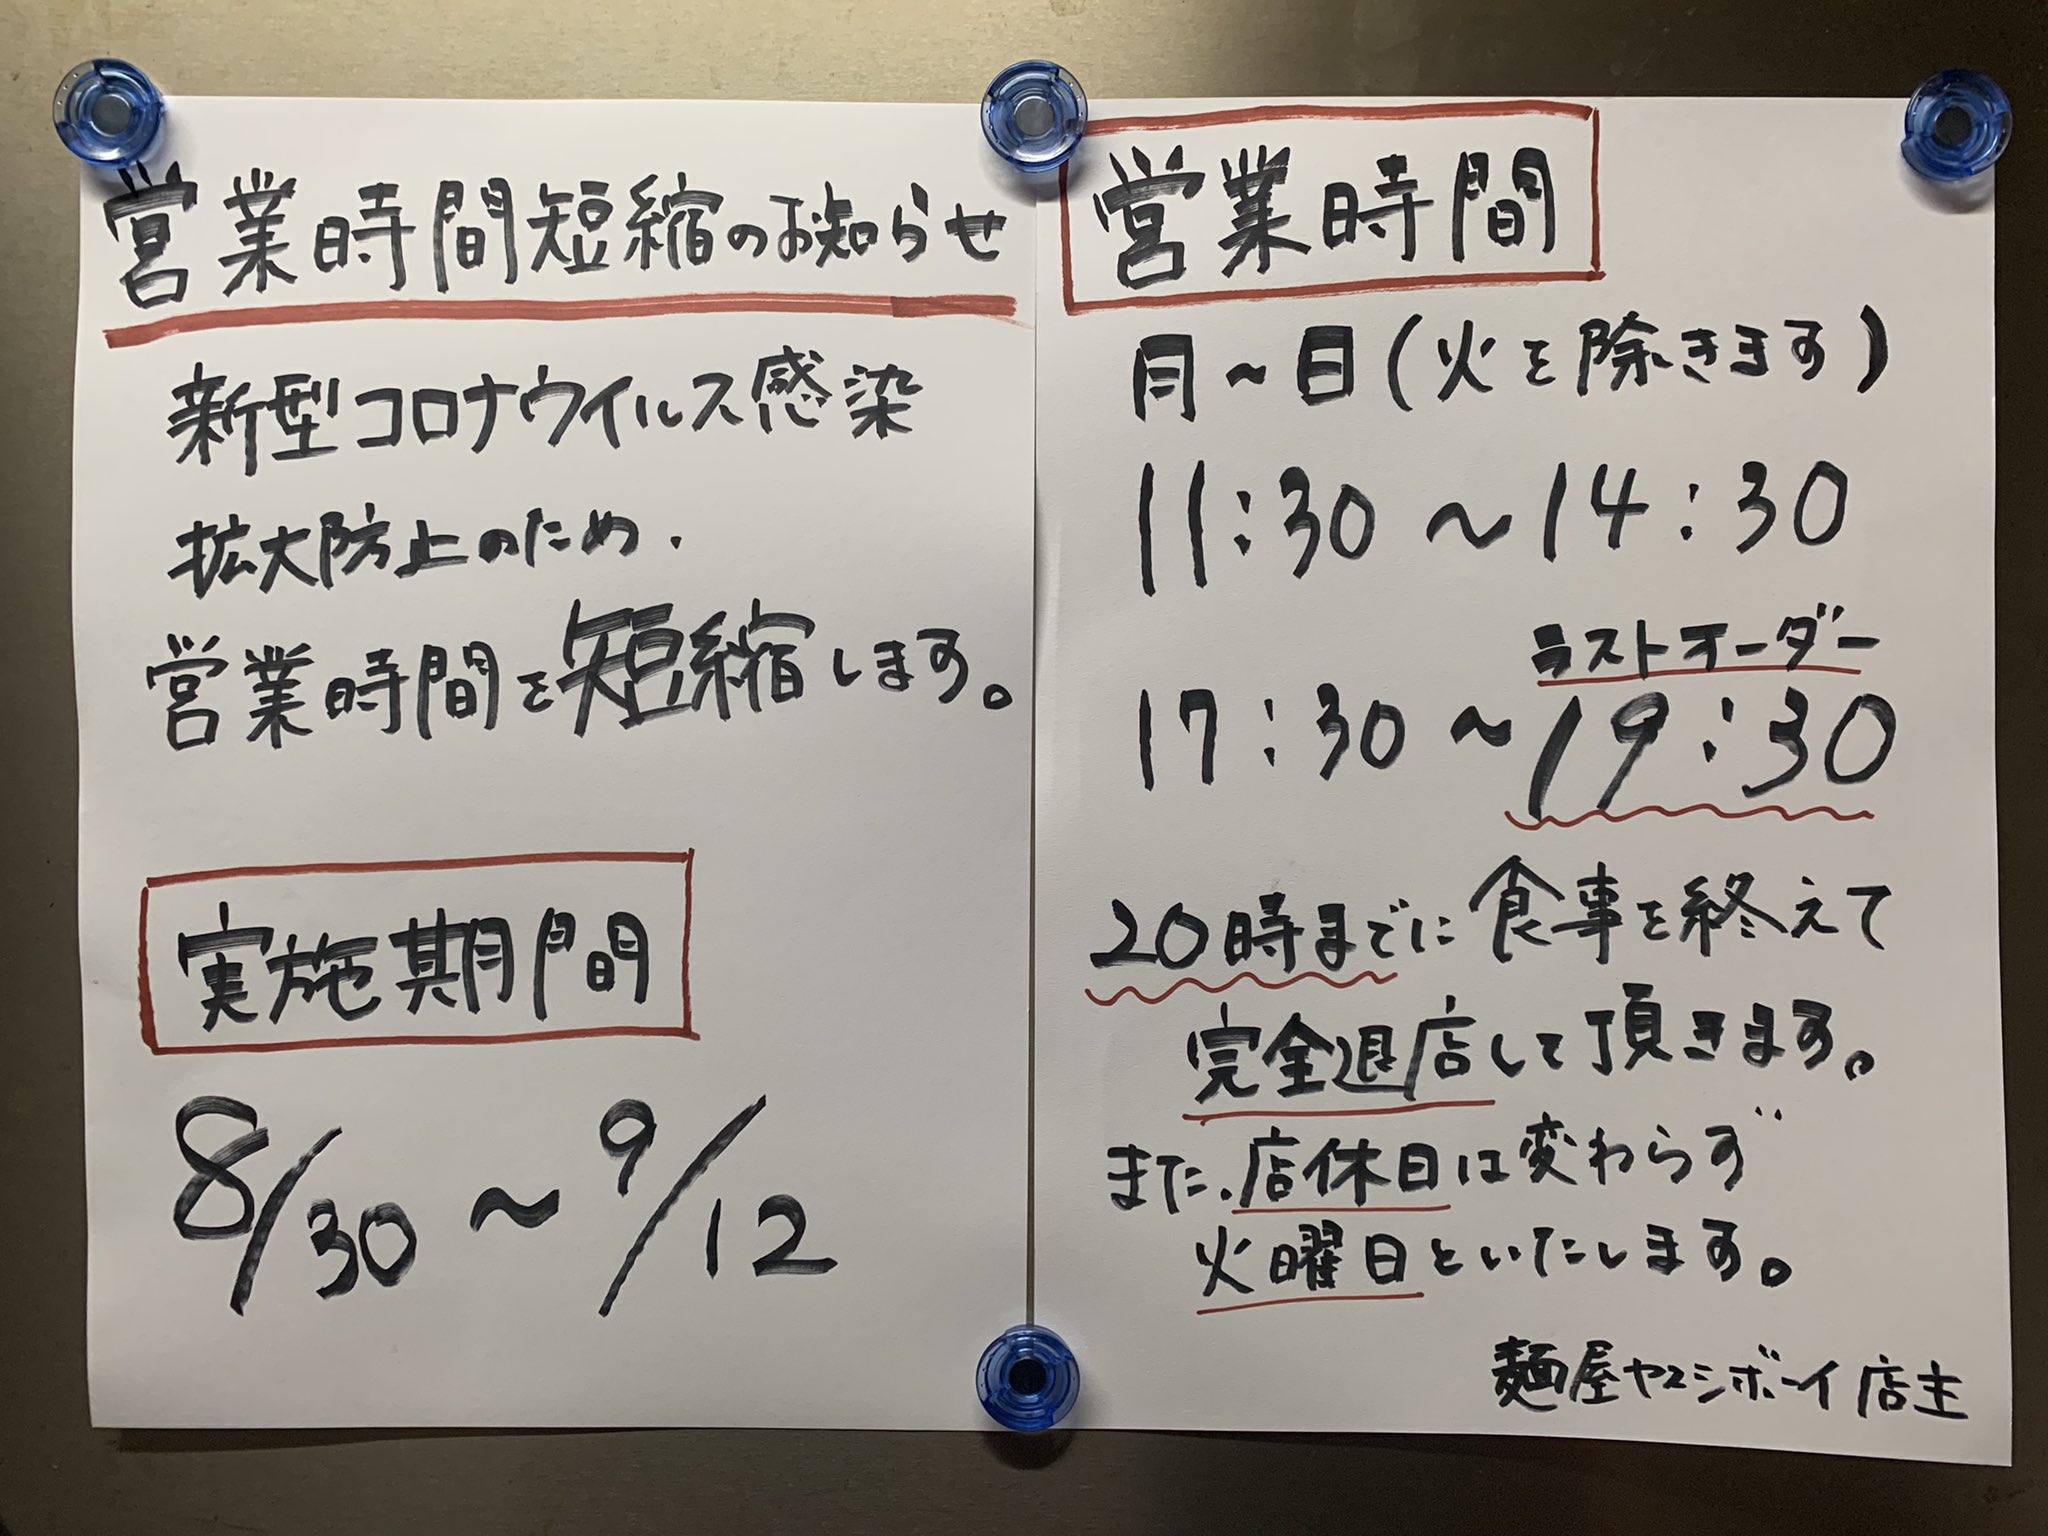 営業時間短縮のお知らせ
新型コロナウイルス感染
拡大防止のため、
営業時間を短縮します。
実施期間
8/30～9/12
営業時間
月～日(火を除きます)
11:30～14:30
ラストオーダー
17:30～19:30
20時までに食事を終えて
完全退店して頂きます。
また、店休日は変わらず
火曜日といたします。
麺屋ヤスシボーイ店主